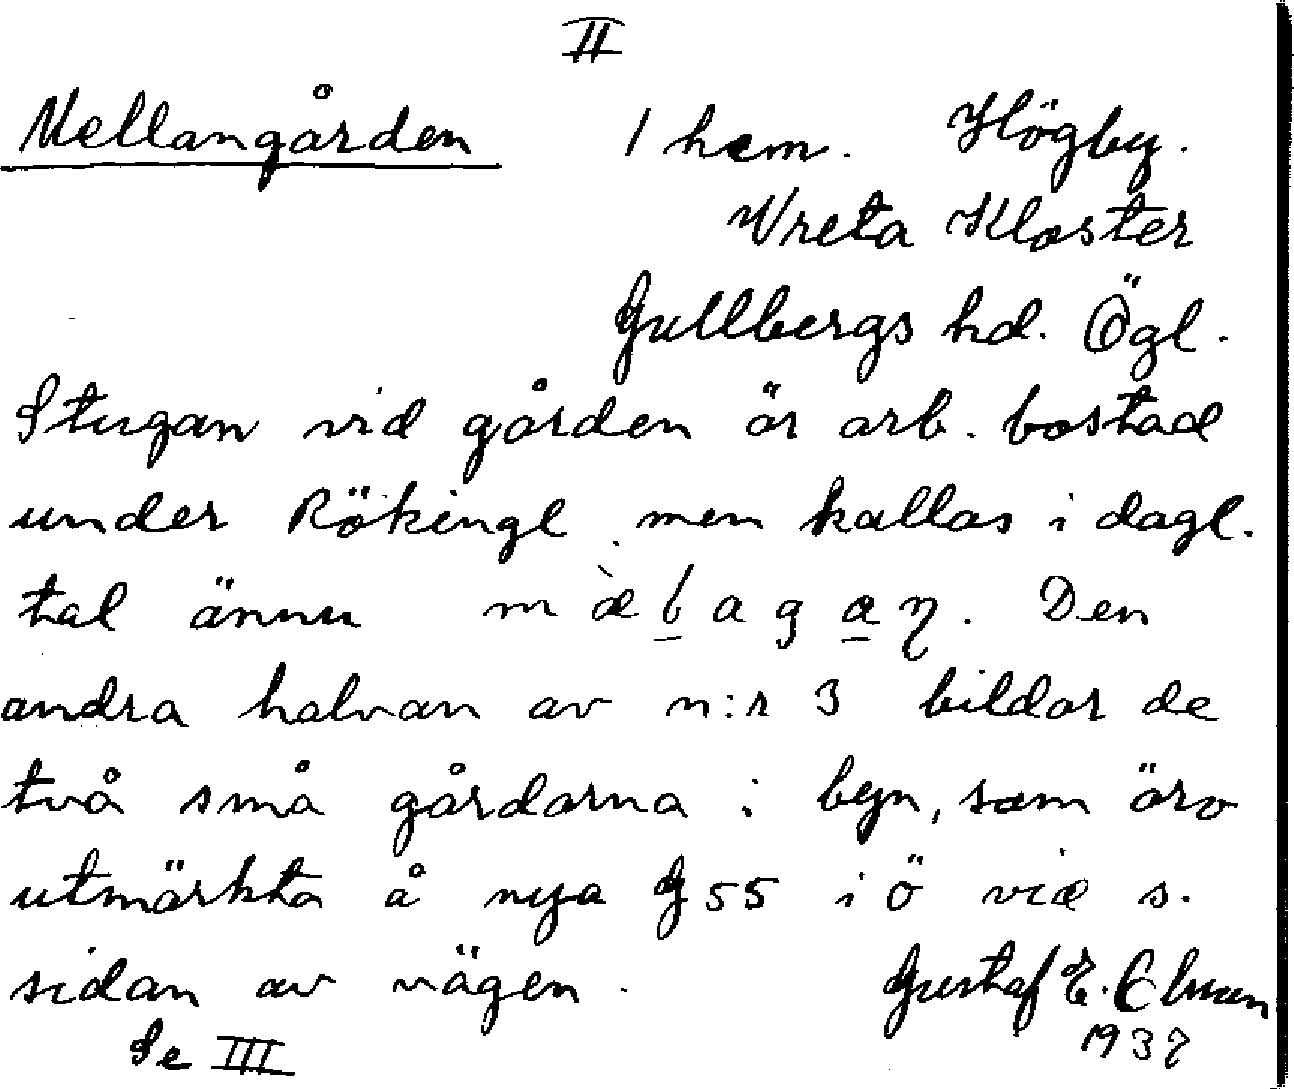 II
Mellangården 1 hem. Högby.
Vreta Kloster
Gullbergs hd. Ögl.
Stugan vid gården är arb. bostad
under Rökingl. men kallas i dagl.
tal ännu Den
andra halvan av n:r 3 bildar de
två små gårdarna i byn, som äro
utmärkta å nya G 55 i ö vid s.
sidan av vägen.
Gustaf E.
Se III 1937